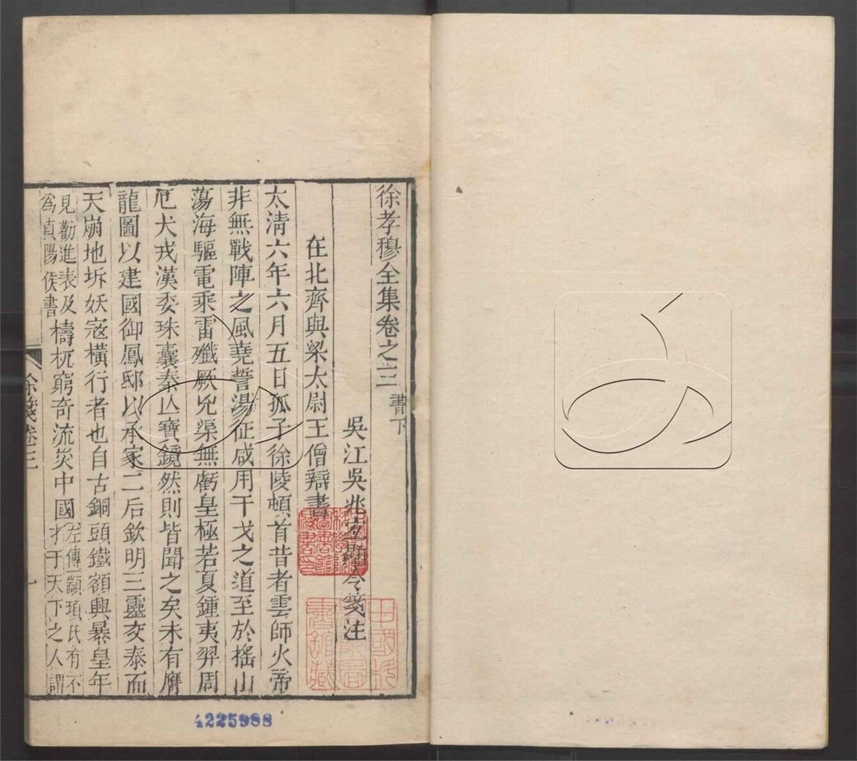 徐孝穆全集卷之三 書下
吳江吳兆宜顯令箋注
在北齊與梁太尉王僧辯書
太清六年六月五日孤子徐陵頓首昔者雲師火帝
非無戰陣之風堯誓湯征咸用干戈之道至於搖山
蕩海驅電乘雷殲厥兇渠無虧皇極若夏鍾夷羿周
厄犬戎漢委珠囊秦亾寶鏡然則皆聞之矣未有膺
龍圖以建國御鳳邸以承家二后欽明三靈交泰而
天崩地坼妖寇橫行者也自古銅頭鐵額興暴皇年
見勸進表及爲貞陽侯書檮杌窮奇流災中國左傳顓頊氏有不才子天下之人謂
徐箋卷三
一
4225988